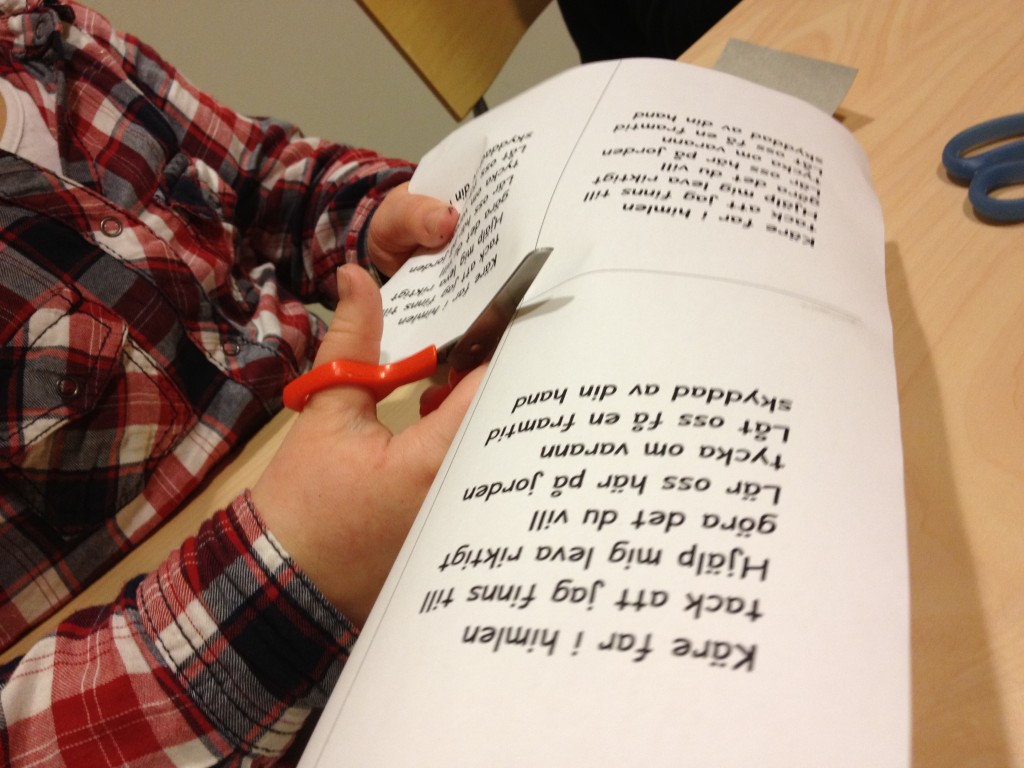 Käre far i himlen
tack att jag finns till
Hjälp mig leva riktigt
göra det du vill
Lär oss här på jorden
tycka om varann
Låt oss få en framtid
skyddad av din hand
Käre far i himlen
tack att jag finns till
Hjälp mig leva riktigt
göra det du vill
Lär oss här på jorden
tycka om varann
Låt oss få en framtid
skyddad av din hand
Käre far i himlen
tack att jag finns till
Hjälp mig leva riktigt
göra det du vill
Lär oss här jorden
tycka om
Låt oss
skyddad din